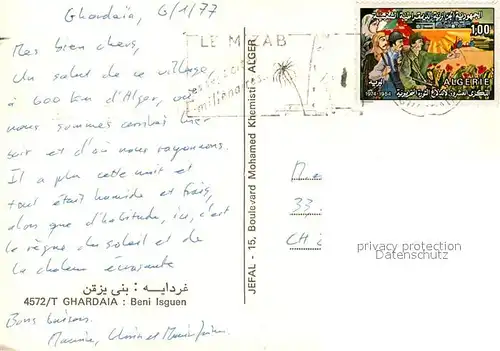 Ghardaïa, 6/1/77
Mes bien chers,
Un salut de ce village
à 600 km d'Alger, où
nous sommes arrivés hier
soir et d'où nous rayonnons.
Il a plu cette nuit et
tout était humide et frais,
alors que d'habitude, ici, c'est
le règne du soleil et de
la chaleur écrasante
غرداية : بني يزقن
4572/T GHARDAIA : Beni Isguen
Bons baisers.
JEFAL - 15, Boulevard Mohamed Khemisti - ALGER
LE M'ZAB
1.00
ALGERIE
1974-1954
33
CH
privacy protection
Datenschutz